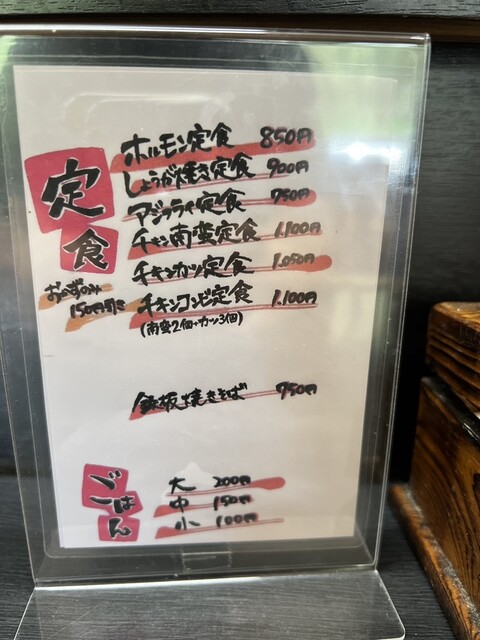 定食
ホルモン定食 850円
しょうが焼き定食 900円
アジフライ定食 750円
チキン南蛮定食 1,100円
チキンカツ定食 1,050円
チキンコンビ定食 1,100円
(南蛮2個+カツ3個)
おかずのみ
150円引き
鉄板焼きそば 750円
ごはん
大 200円
中 150円
小 100円